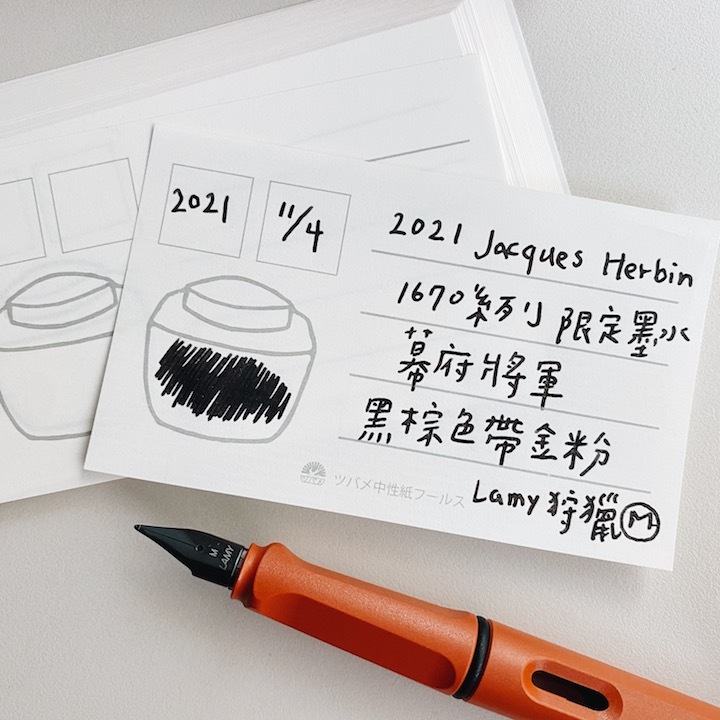 2021
11/4
2021 Jacques Herbin
1670系列 限定墨水
幕府將軍
黑棕色帶金粉
Lamy 狩獵 M
ツバメ中性紙フールス
M
LAMY